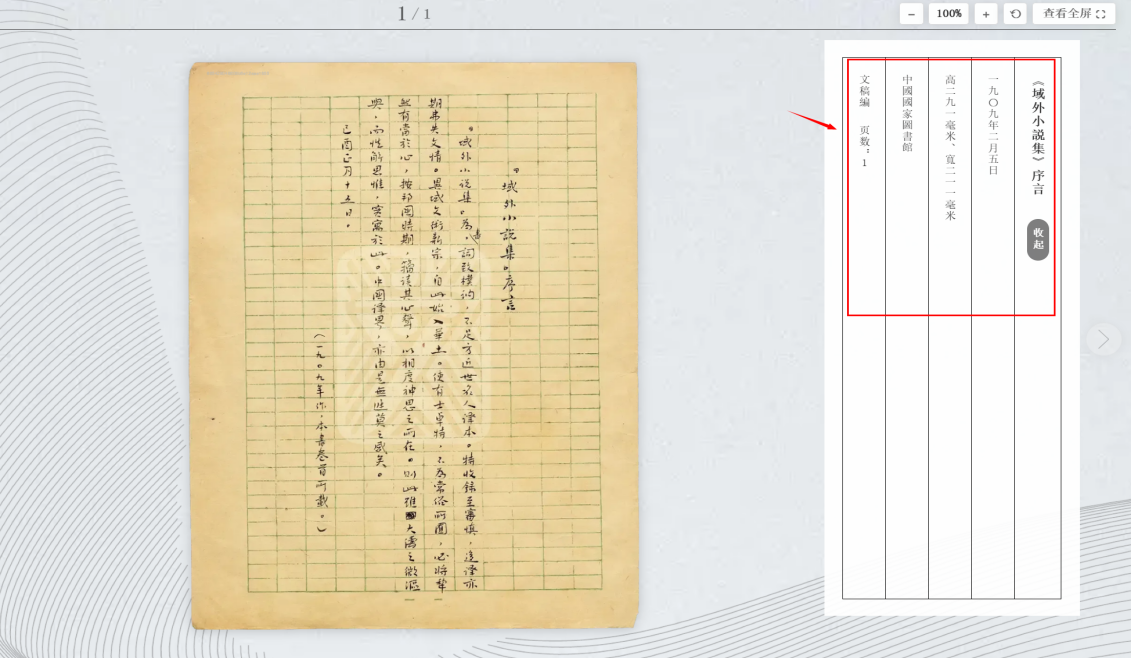 1 / 1
− 100% + 查看全屏
『域外小説集』序言
『域外小説集』為書，詞致樸訥，不足方近世名人譯本。特收錄至審慎，迻譯亦
期弗失文情。異域文術新宗，自此始入華土。使有士卓特，不為常俗所囿，必將犂
然有當於心，按邦國時期，籀讀其心聲，以相度神思之所在。則此雖大濤之微漚
與，而性解思惟，實寓於此。中國譯界，亦由是無遲莫之感矣。
己酉正月十五日。
（一九〇九年作，本書卷首所載。）
《域外小説集》序言
收起
一九〇九年二月五日
高二九一毫米、寬二一一毫米
中國國家圖書館
文稿編 页数：1